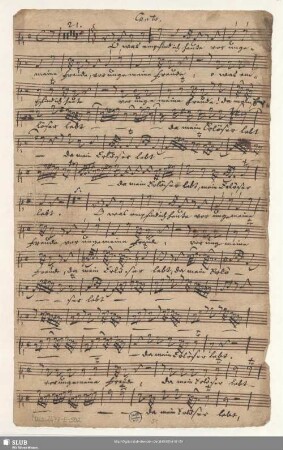 Canto.
21.
O was empfind ich heute vor unge-
meine Freude, vor ungemeine Freude, o was em-
pfind ich heute vor ungemeine Freude! da mein Er-
löser lebt da mein Erlöser lebt
da mein Erlöser lebt
da mein Erlöser lebt, mein Erlöser
lebt. O was empfind ich heute vor ungemeine
Freude vor ungemeine Freude, vor ungemeine
Freude, da mein Erlöser lebt, da mein Erlö-
ser lebt
da mein Erlöser lebt.
vor ungemeine Freude, da mein Erlöser lebt
da mein Erlöser lebt,
SLUB